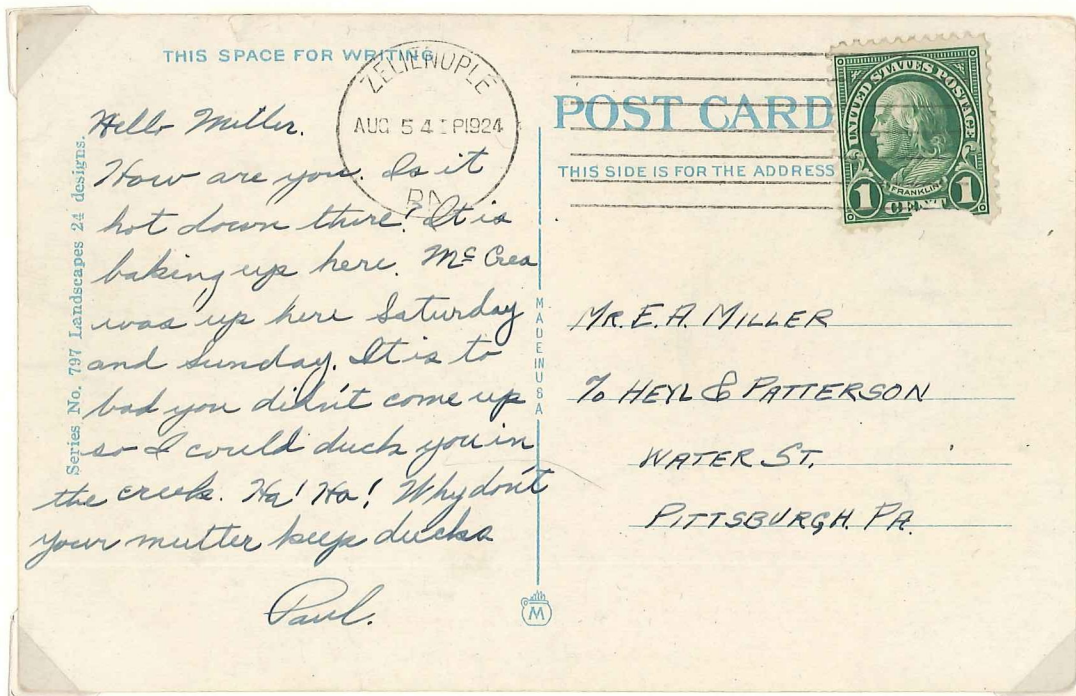 THIS SPACE FOR WRITING
ZELIENOPLE
AUG 5 4 P 1924
PA
POST CARD
THIS SIDE IS FOR THE ADDRESS
UNITED STATES POSTAGE
FRANKLIN
1 CENT 1
Series No. 797 Landscapes 24 designs.
Hello Miller.
How are you. Is it
hot down there? It is
baking up here. Mc Crea
was up here Saturday
and Sunday. It is to
bad you didn't come up
so I could duck you in
the creek. Ha! Ha! Why don't
your mutter keep ducks
Paul.
MADE IN USA
M
MR. E. A. MILLER
% HEYL & PATTERSON
WATER ST.
PITTSBURGH. PA.